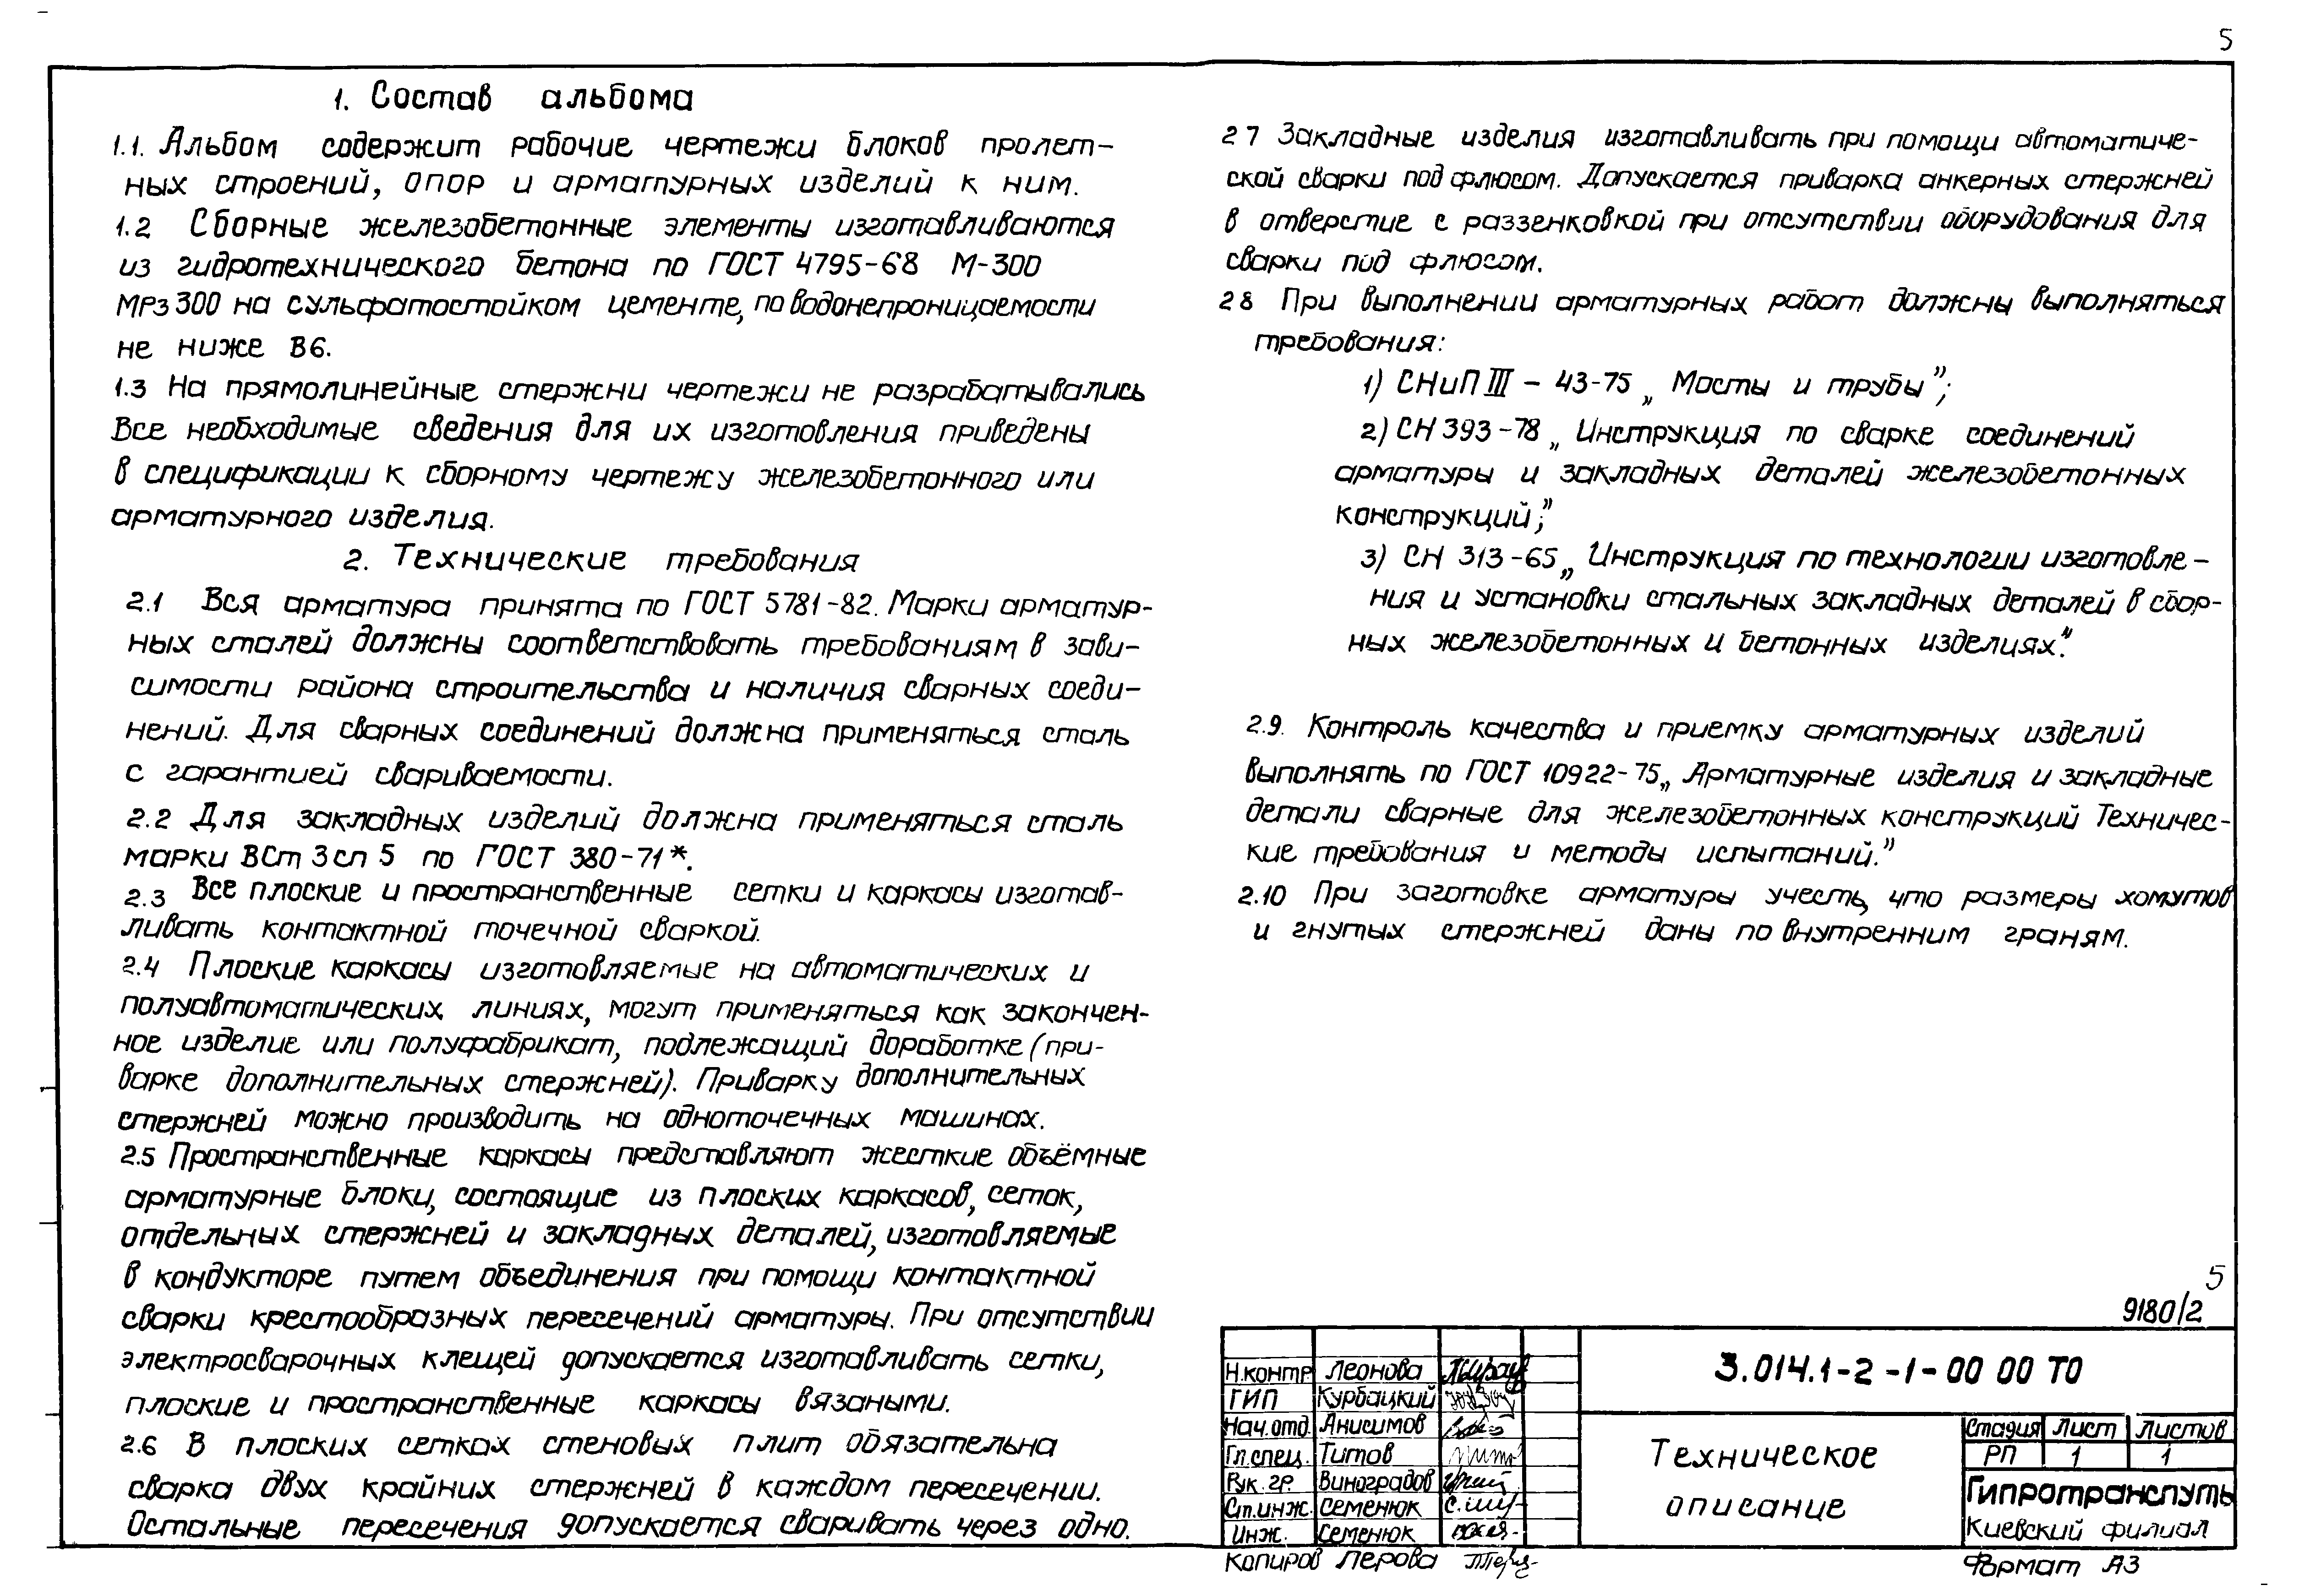 5
1. Состав альбома
1.1. Альбом содержит рабочие чертежи блоков пролет-
ных строений, опор и арматурных изделий к ним.
1.2 Сборные железобетонные элементы изготавливаются
из гидротехнического бетона по ГОСТ 4795-68 М-300
Мрз 300 на сульфатостойком цементе, по водонепроницаемости
не ниже В6.
1.3 На прямолинейные стержни чертежи не разрабатывались
Все необходимые сведения для их изготовления приведены
в спецификации к сборному чертежу железобетонного или
арматурного изделия.
2. Технические требования
2.1 Вся арматура принята по ГОСТ 5781-82. Марки арматур-
ных сталей должны соответствовать требованиям в зави-
симости района строительства и наличия сварных соеди-
нений. Для сварных соединений должна применяться сталь
с гарантией свариваемости.
2.2 Для закладных изделий должна применяться сталь
марки ВСт 3сп 5 по ГОСТ 380-71*.
2.3 Все плоские и пространственные сетки и каркасы изготав-
ливать контактной точечной сваркой.
2.4 Плоские каркасы изготовляемые на автоматических и
полуавтоматических линиях, могут применяться как закончен-
ное изделие или полуфабрикат, подлежащий доработке (при-
варке дополнительных стержней). Приварку дополнительных
стержней можно производить на одноточечных машинах.
2.5 Пространственные каркасы представляют жесткие объёмные
арматурные блоки, состоящие из плоских каркасов, сеток,
отдельных стержней и закладных деталей, изготовляемые
в кондукторе путем объединения при помощи контактной
сварки крестообразных пересечений арматуры. При отсутствии
электросварочных клещей допускается изготавливать сетки,
плоские и пространственные каркасы вязаными.
2.6 В плоских сетках стеновых плит обязательна
сварка двух крайних стержней в каждом пересечении.
Остальные пересечения допускается сваривать через одно.
2 7 Закладные изделия изготавливать при помощи автоматиче-
ской сварки под флюсом. Допускается приварка анкерных стержней
в отверстие с раззенковкой при отсутствии оборудования для
сварки под флюсом.
2 8 При выполнении арматурных работ должны выполняться
требования:
1) СНиП III - 43-75 „ Мосты и трубы";
2) СН 393-78 „ Инструкция по сварке соединений
арматуры и закладных деталей железобетонных
конструкций";
3) СН 313-65 „ Инструкция по технологии изготовле-
ния и установки стальных закладных деталей в сбор-
ных железобетонных и бетонных изделиях".
2.9. Контроль качества и приемку арматурных изделий
выполнять по ГОСТ 10922-75 „ Арматурные изделия и закладные
детали сварные для железобетонных конструкций Техничес-
кие требования и методы испытаний."
2.10 При заготовке арматуры учесть, что размеры хомутов
и гнутых стержней даны по внутренним граням.
5
9180/2
Н.контр Леонова
ГИП Курбацкий
Нач.отд. Анисимов
Гл.спец. Титов
Рук. гр. Виноградов
Ст.инж. Семенюк
Инж. Семенюк
3.014.1-2-1-00 00 ТО
Техническое
описание
Стадия Лист Листов
РП 1 1
Гипротранспуть
Киевский филиал
Копиров Перова
Формат А3